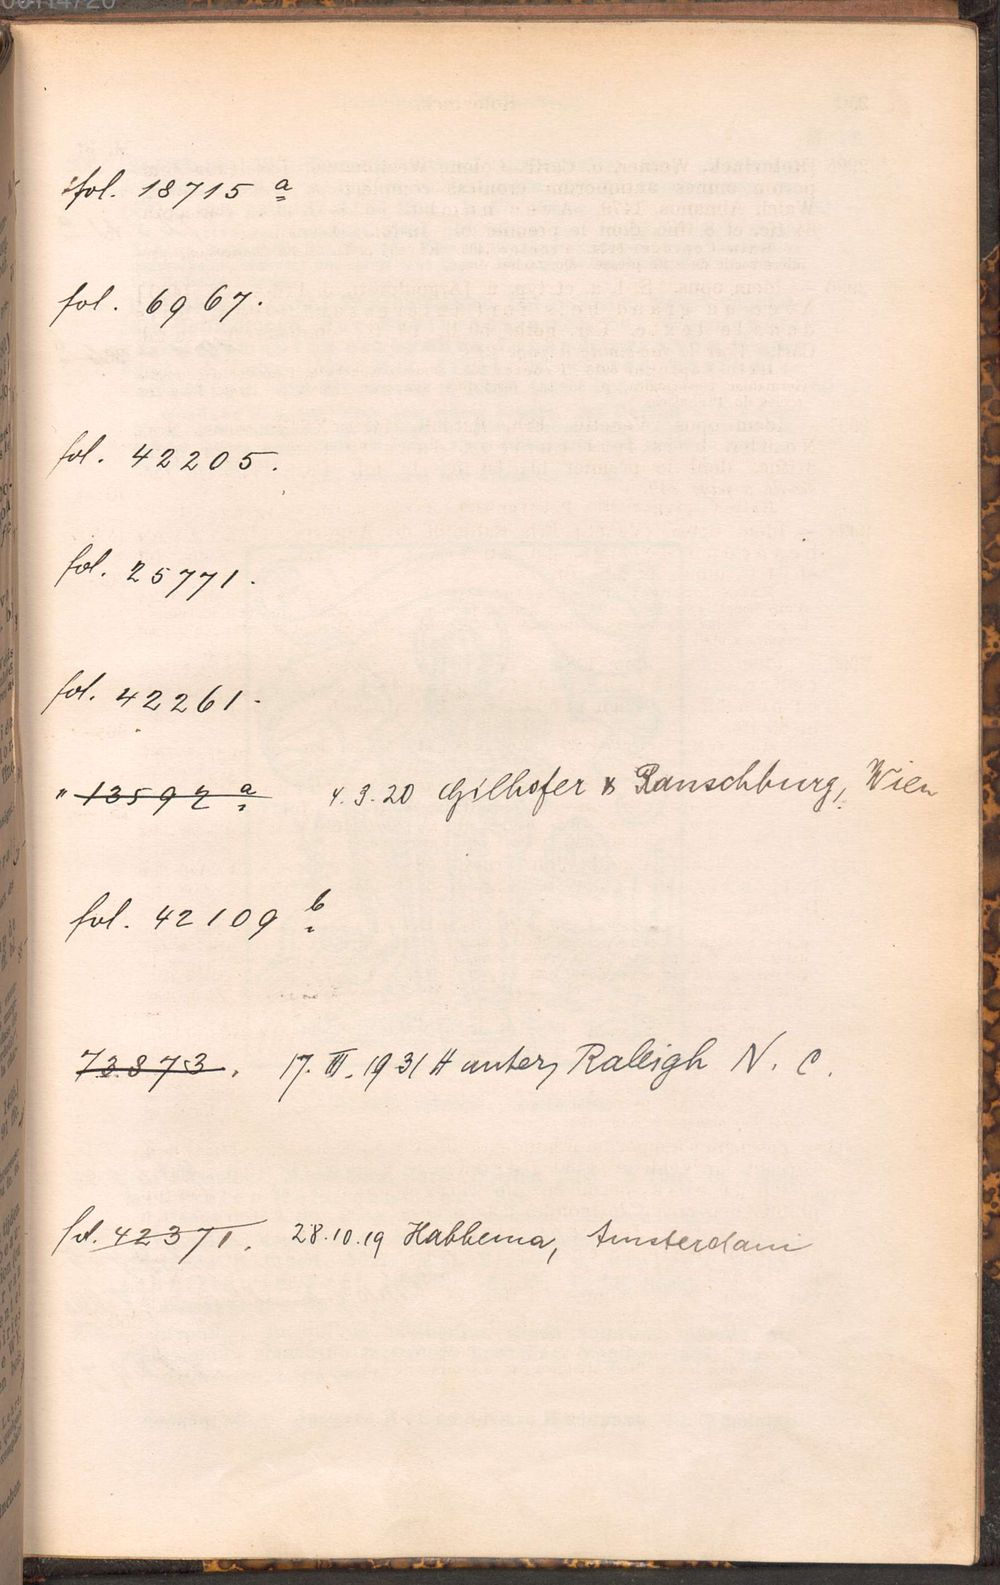 fol. 18715 a
fol. 6967.
fol. 42205.
fol. 25771.
fol. 42261.
" 13597 a 4.3.20 Gilhofer & Ranschburg, Wien
fol. 42109 b
73873. 17. III. 1931 Hunter, Raleigh N. C.
fol. 42371. 28.10.19 Habbema, Amsterdam